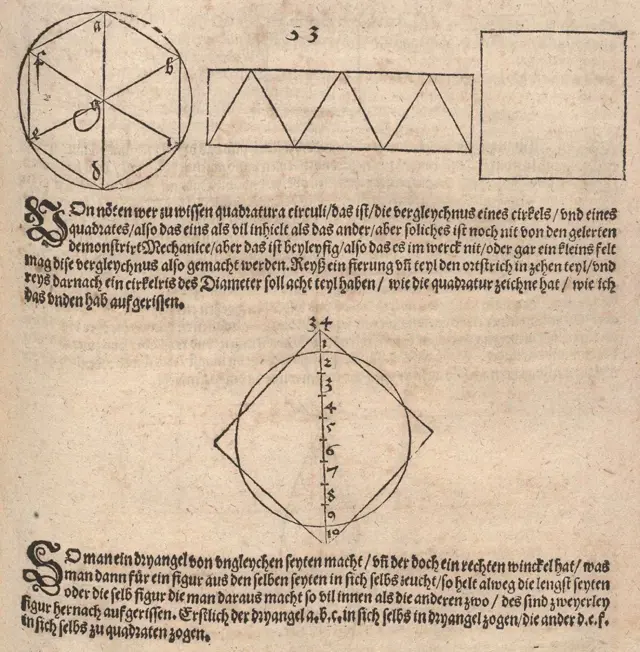 33
a
f b
g
e ı
d
VOn nöten wer zu wissen quadratura circuli/das ist/die vergleychnus eines cirkels/vnd eines
quadrates/also das eins als vil inhielt als das ander/aber soliches ist noch nit von den gelerten
demonstrirt Mechanice/aber das ist beyleyfig/also das es im werck nit/oder gar ein kleins felt
mag dise vergleychnus also gemacht werden. Reyß ein fierung vñ teyl den ortstrich in zehen teyl/vnd
reys darnach ein cirkelris des Diameter soll acht teyl haben/ wie die quadratur zeichne hat/ wie ich
das vnden hab aufgerissen.
34
1
2
3
4
5
6
7
8
9
10
SO man ein dryangel von vngleychen seyten macht/vñ der doch ein rechten winckel hat/was
man dann für ein figur aus den selben seyten in sich selbs zeucht/so helt alweg die lengst seyten
oder die selb figur die man daraus macht so vil innen als die anderen zwo/ des sind zweyerley
figur hernach aufgerissen. Erstlich der dryangel a.b.c. in sich selbs in dryangel zogen/die ander d.e.f.
in sich selbs zu quadraten zogen.